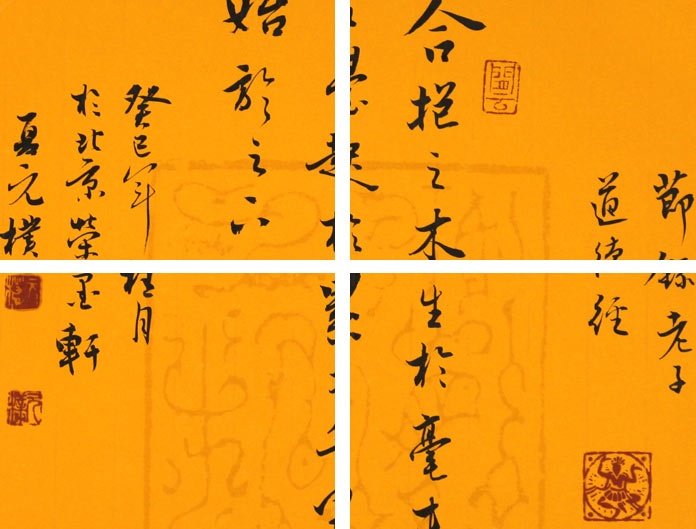 節錄老子
道德經
合抱之木生於毫末
起於累土千里
始於足下
癸巳年桂月
於北京榮墨軒
夏元樸